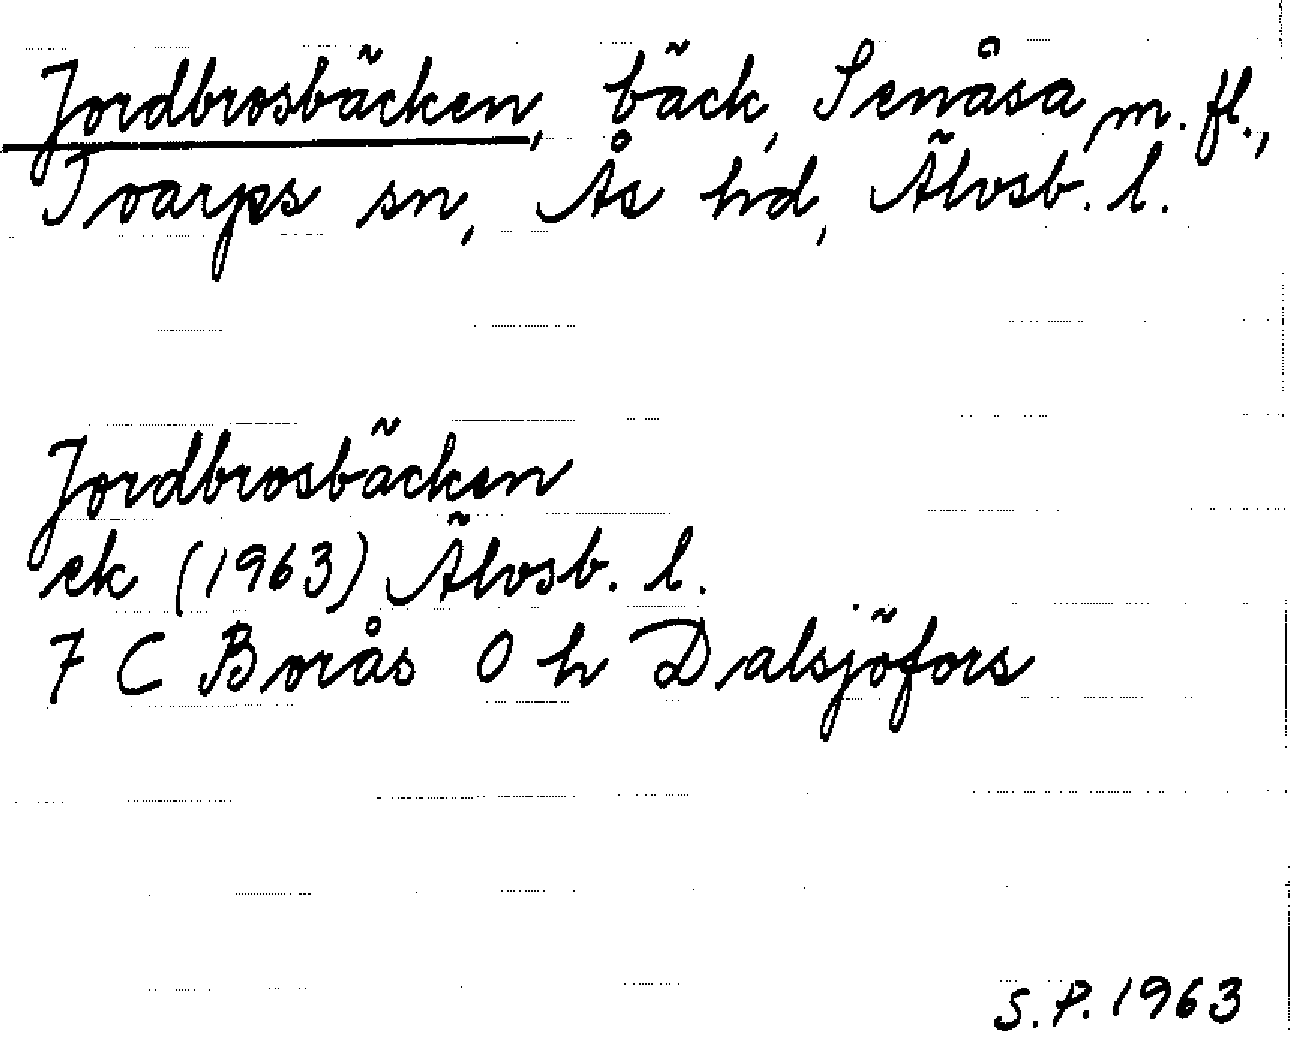 Jordbrosbäcken, bäck, Senåsa, m. fl.,
Tvarps sn, Ås hd, Älvsb. l.
Jordbrosbäcken
ek (1963) Älvsb. l.
7 C Borås 0 h Dalsjöfors
S.P. 1963